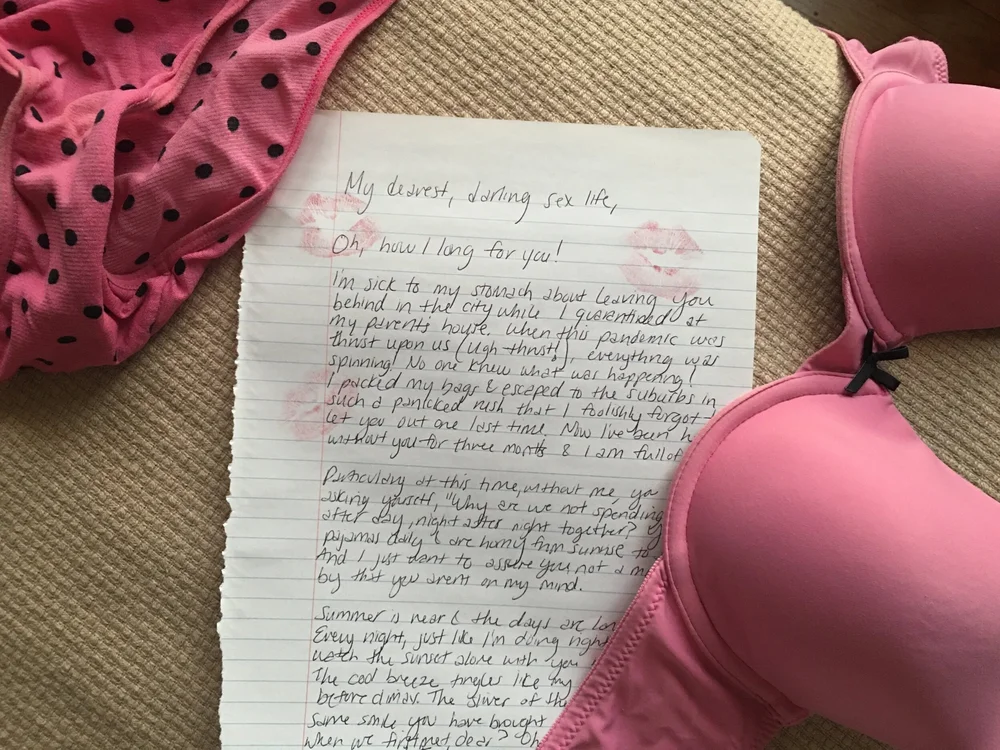 My dearest, darling sex life,
Oh, how I long for you!
I'm sick to my stomach about leaving you
behind in the city while I quarentined at
my parents house. When this pandemic was
thrust upon us (ugh-thrust!), everything was
spinning! No one knew what was happening!
I packed my bags & escaped to the suburbs in
such a panicked rush that I foolishly forgot
let you out one last time. Now I've been h
without you for three months & I am full of
Particularly at this time, without me, yo
asking yourself, "Why are we not spending
after day, night after night together?
pajamas daily & are horny from sunrise to
And I just want to assure you, not a m
by that you arent on my mind.
Summer is near & the days are lon
Every night, just like I'm doing right
watch the sunset alone with you
The cool breeze tingles like my
before climax. The sliver of the
same smile you have brought
when we first met, dear? Oh